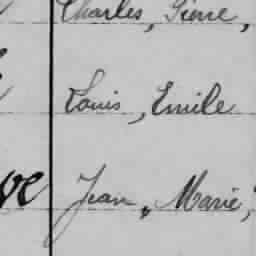 Charles, Pierre,
Louis, Emile
ve Jean, Marie,